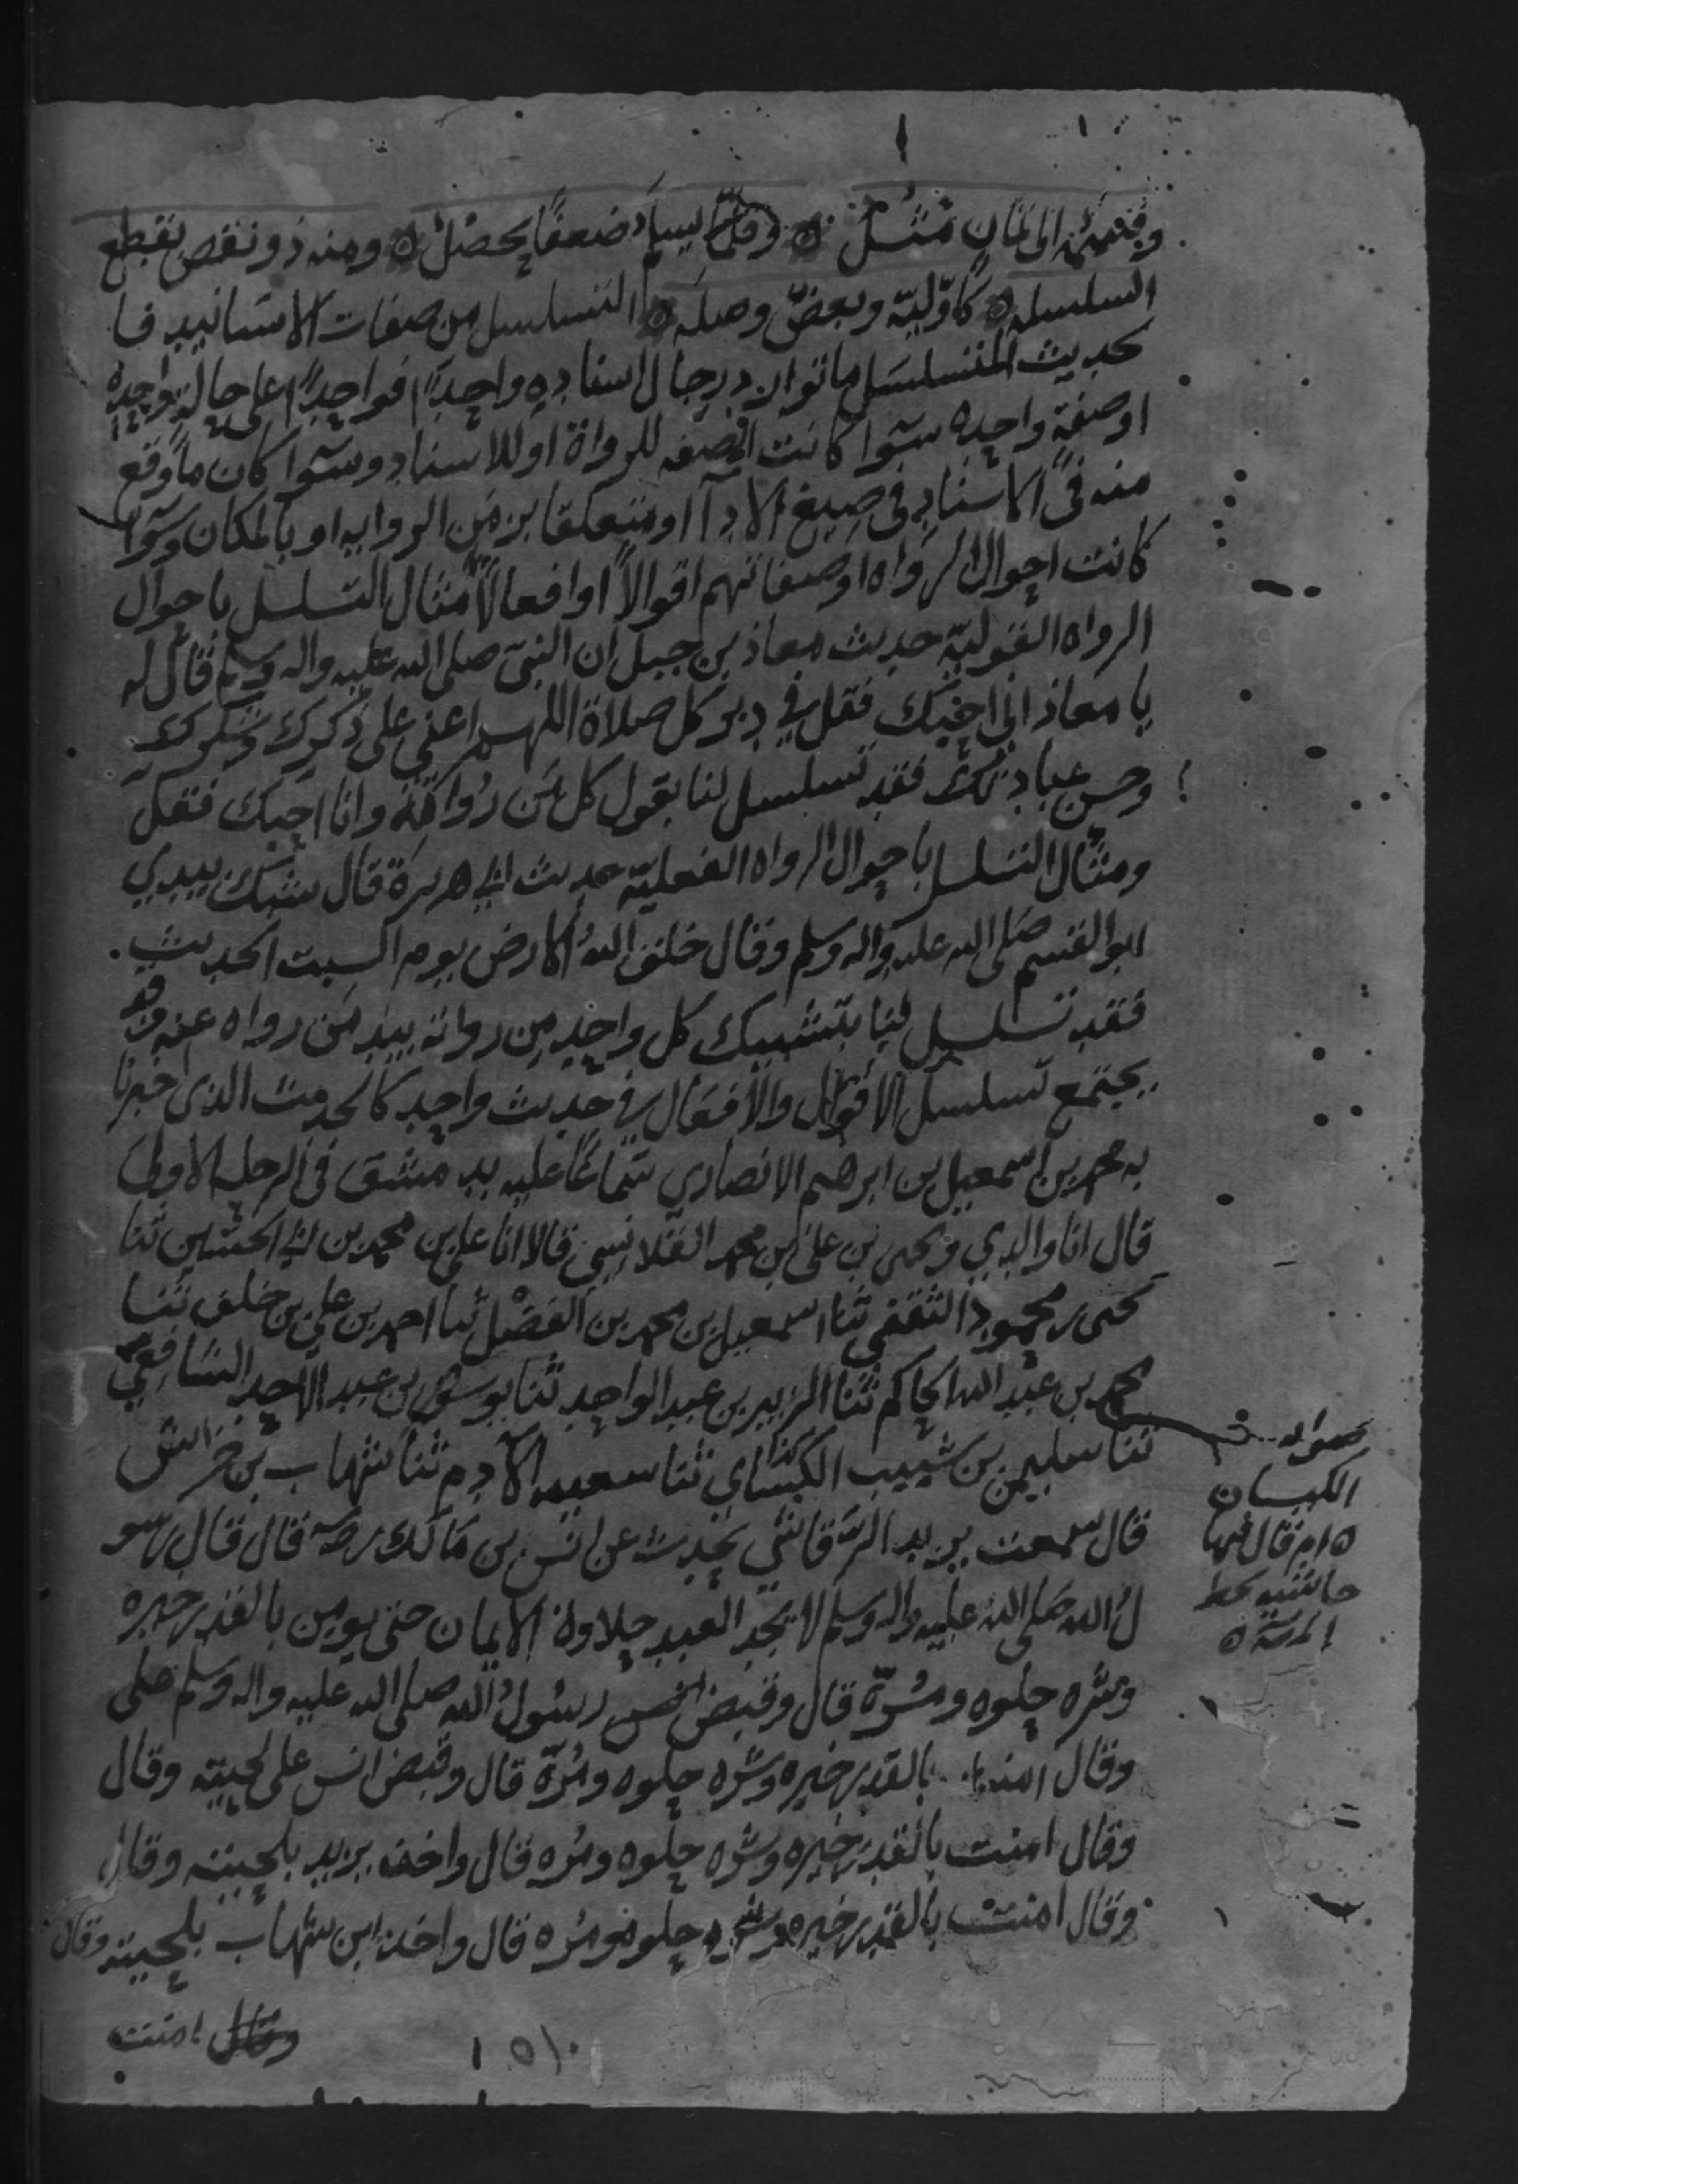 وقسمه الى ثمان مثل ۞ وقلما يسلم ضعفا يحصل ۞ ومنه ذو نقص بقطع
السلسله ۞ كاوليّة وبعضٌ وصله ۞ التسلسل من صفات الاسانيد فا
لحديث المتسلسل ما توارد رجال اسناده واحدا فواحدا على حالة واحدة
او صفة واحده سوا كانت الصفه للرواة او للاسناد وسوا كان ما وقع
منه في الاسناد في صيغ الادآ او متعلقا بزمن الروايه او بالمكان وسوآ
كانت احوال الرواه او صفاتهم اقوالاً او افعالاً مثال التسلسل باحوال
الرواه القوليّة حديث معاذ بن جبل ان النبي صلى الله عليه واله وسلم قال له
يا معاذ اني احبك فقل في دبر كل صلاة اللهم اعني على ذكرك وشكرك
وحسن عبادتك فقد تسلسل لنا بقول كل من رواته وانا احبك فقل
ومثال التسلسل باحوال الرواه الفعليّة حديث ابي هريرة قال شبك بيدي
ابو القسم صلى الله عليه واله وسلم وقال خلق الله الارض يوم السبت الحديث
فقد تسلسل لنا بتشبيك كل واحد من رواته بيد من رواه عنه وقد
يجتمع تسلسل الاقوال والافعال في حديث واحد كالحديث الذي اخبرنا
به محمد بن اسمعيل بن ابرهيم الانصاري سماعًا عليه بدمشق في الرحله الاولى
قال انا والدي ويحيى بن علي بن محمد القلانسي قالا انا علي بن محمد بن ابي الحسين ثنا
يحيى بن محمود الثقفي ثنا اسمعيل بن محمد بن الفضل ثنا احمد بن علي بن خلف ثنا
محمد بن عبد الله الحاكم ثنا الزبير بن عبد الواحد ثنا يوسف بن عبد الاحد الشافعي
ثنا سليمن بن شعيب الكسائي ثنا سعيد الادم ثنا شهاب بن خراش
قال سمعت يزيد الرقاشي يحدث عن انس بن مالك رضه قال قال رسو
ل الله صلى الله عليه واله وسلم لا يجد العبد حلاوة الايمان حتى يومن بالقدر خيره
وشره حلوه ومره قال وقبض انس رسول الله صلى الله عليه واله وسلم على
وقال امنت بالقدر خيره وشره حلوه ومره قال وقبض انس على لحيته وقال
وقال امنت بالقدر خيره وشره حلوه ومره قال واخذ يزيد بلحيته وقال
وقال امنت بالقدر خيره وشره حلوه ومره قال واخذ ابن شهاب بلحيته وقال
وقال امنت
صوابه
الكيسان
حاشيه بخط